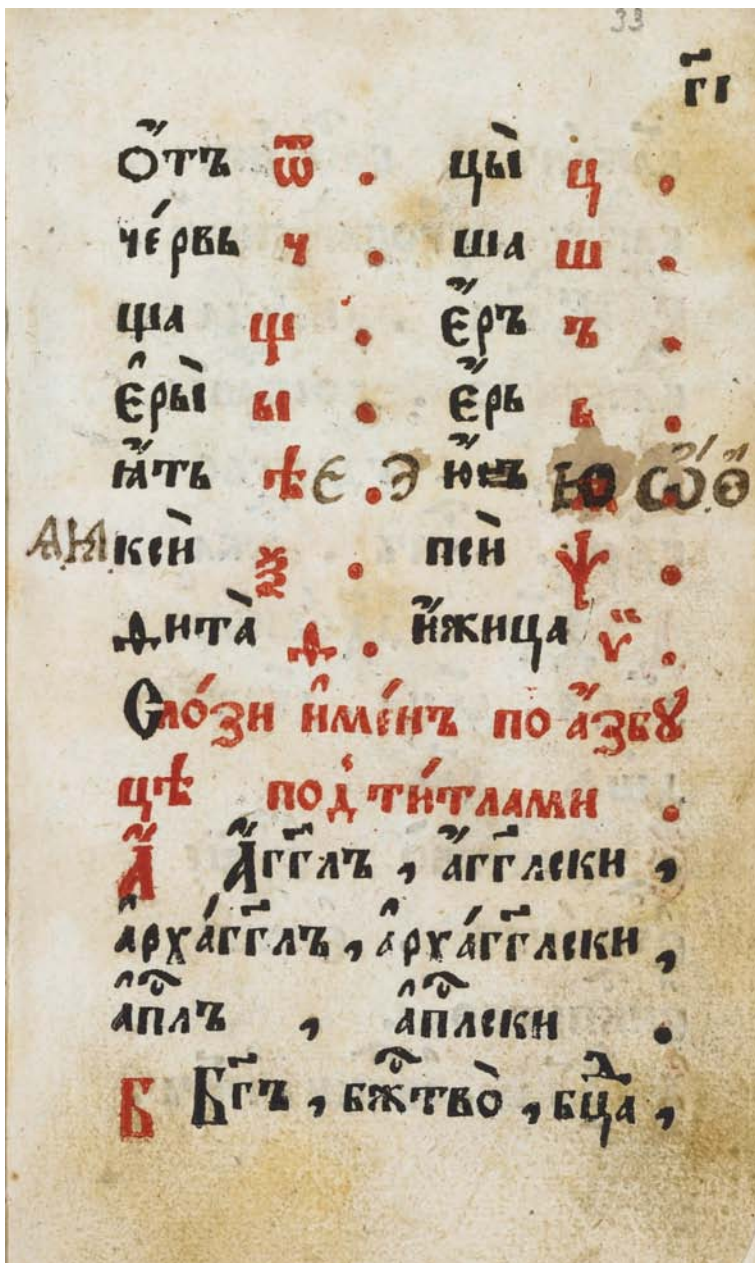 33
г҃і
Ѻ҆́тъ ѿ . цы̀ ц .
че́рвь ч . ша ш .
ща щ . є҆́ръ ъ .
є҆ры̀ ы . є҆́рь ь .
ꙗ҆́ть ѣ є . э ю҆́съ ю ѡ҆́ ѳ҆́
А Ꙗ ксѝ ѯ . псѝ ѱ .
ѳита̀ ѳ . и҆́жица ѵ̈ .
Сло́зи и҆ме́нъ по а҆́збꙋ
цѣ под̾ ти́тлами .
А҆́ А҆́гг҃лъ , а҆́гг҃лски ,
а҆рха́гг҃лъ , а҆рха́гг҃лски ,
а҆пⷭ҇лъ , а҆пⷭ҇лски .
Б Бг҃ъ , бжⷭ҇тво̀ , бцⷣа ,